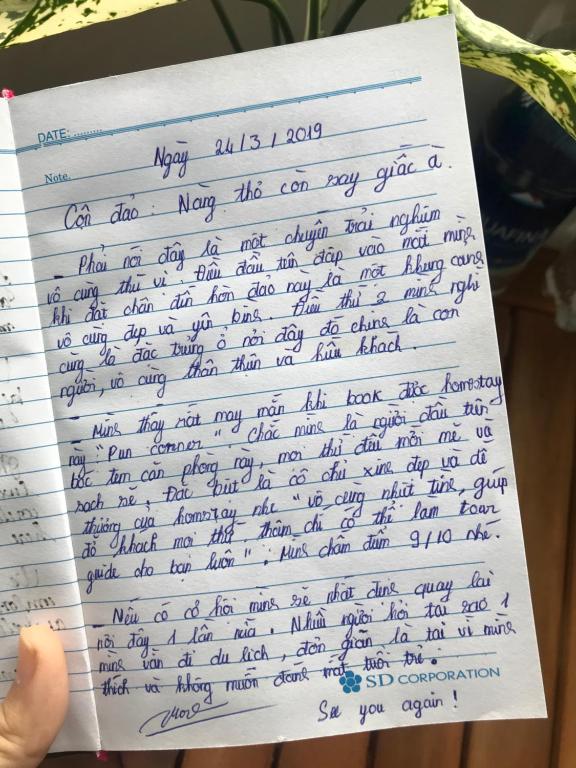 DATE: .........
Note.
Ngày 24/3/2019
Côn đảo: Nàng thơ còn say giấc à.
- Phải nói đây là một chuyến trải nghiệm
vô cùng thú vị. Điều đầu tiên đập vào mắt mình
khi đặt chân đến hòn đảo này là một khung cảnh
vô cùng đẹp và yên bình. Điều thứ 2 mình nghĩ
cũng là đặc trưng ở nơi đây đó chính là con
người, vô cùng thân thiện và hiếu khách.
- Mình thấy rất may mắn khi book được homestay
này "Pun corner". Chắc mình là người đầu tiên
bóc tem căn phòng này, mọi thứ đều mới mẻ và
sạch sẽ. Đặc biệt là cô chủ xinh đẹp và dễ
thương của homestay nhé "vô cùng nhiệt tình, giúp
đỡ khách mọi thứ, thậm chí có thể làm tour
guide cho bạn luôn". Mình chấm điểm 9/10 nhé.
- Nếu có cơ hội mình sẽ nhất định quay lại
nơi đây 1 lần nữa. Nhiều người hỏi tại sao 1
mình vẫn đi du lịch, đơn giản là tại vì mình
thích và không muốn đánh mất tuổi trẻ.
SD CORPORATION
See you again!
AQUAFINA